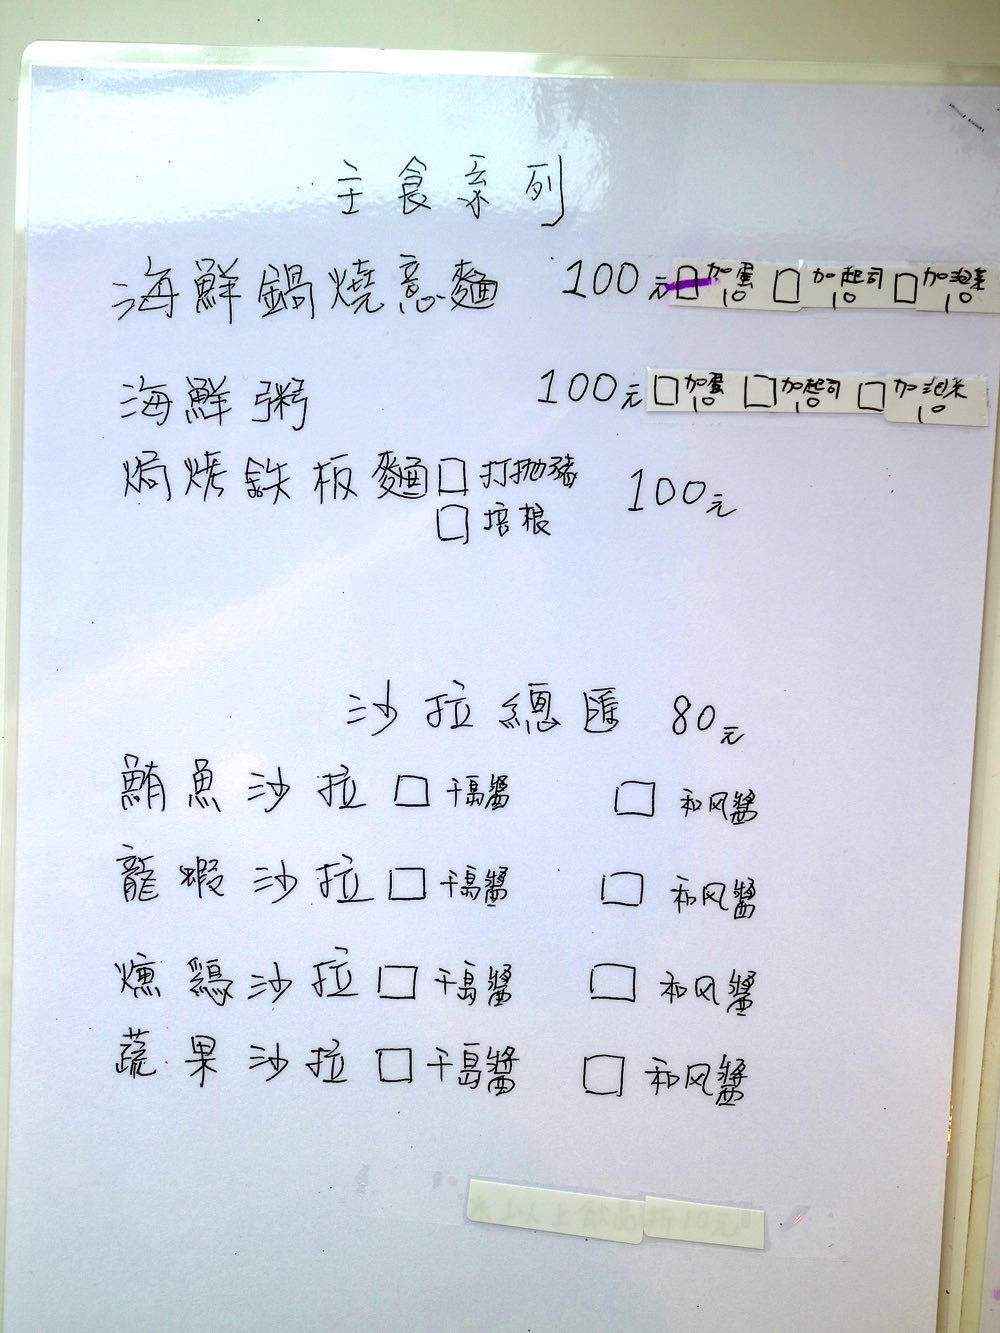 主食系列
海鮮鍋燒意麵 100元 □加蛋10 □加起司10 □加泡菜10
海鮮粥 100元 □加蛋10 □加起司10 □加泡菜10
焗烤鉄板麵 □打抛豬 100元
□培根
沙拉總匯 80元
鮪魚沙拉 □千島醬 □和风醬
龍蝦沙拉 □千島醬 □和风醬
燻鷄沙拉 □千島醬 □和风醬
蔬果沙拉 □千島醬 □和风醬
以上飲品 10元